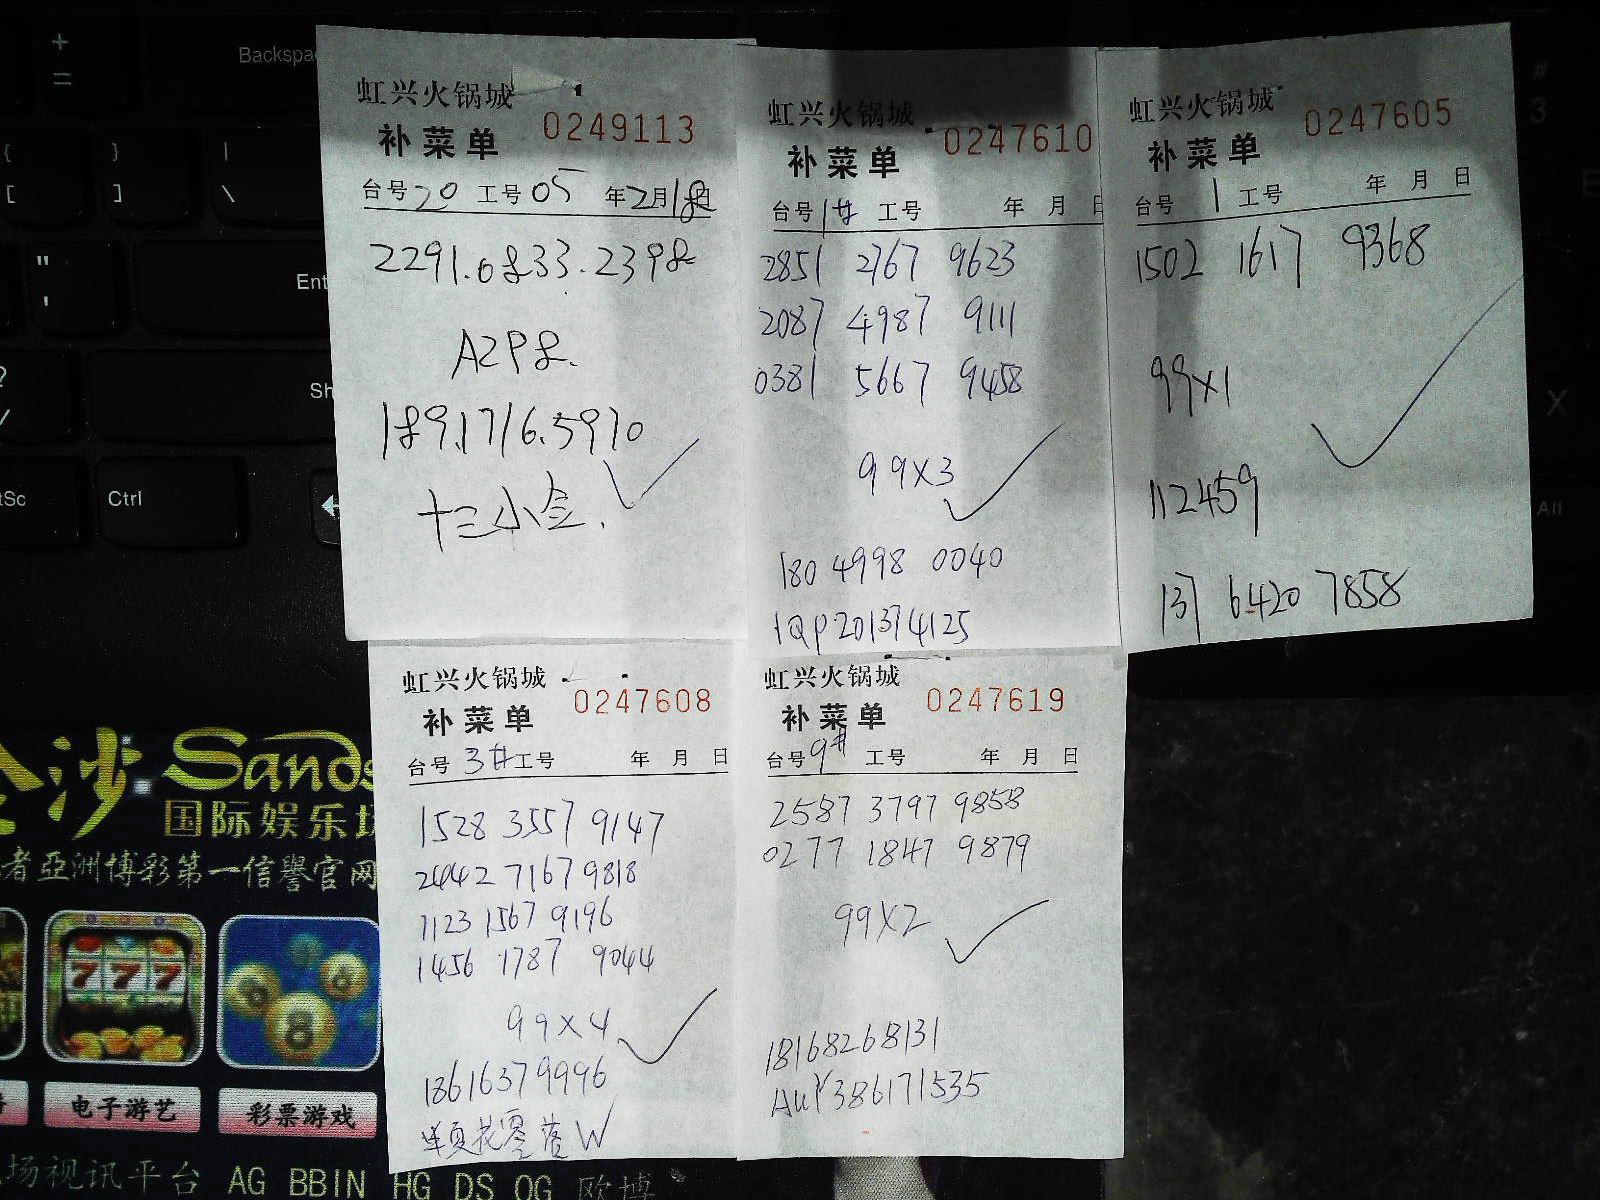 +
=
Backspa
虹兴火锅城
补菜单 0249113
台号20 工号05 年2月18日
2291.0833.2398
A2P8.
189.1716.5970
虹兴火锅城
补菜单 0247610
台号1# 工号 年 月
2851 2767 9623
2087 4987 9111
0381 5667 9458
99X3
180 4998 0040
虹兴火锅城
补菜单 0247605
台号 1 工号 年 月 日
1502 1617 9368
99X1
112459
137 6420 7858
虹兴火锅城
补菜单 0247608
台号 3# 工号 年 月 日
1528 3557 9147
2442 7167 9818
1123 1567 9196
1456 1787 9044
99X4
18616379996
虹兴火锅城
补菜单 0247619
台号9# 工号 年 月 日
2587 3797 9858
0277 1847 9879
99X2
18168268131
386171535
{ } |
[ ] \
"
'
Ent
?
/
Sh
tSc
Ctrl
#
3
X
Alt
金沙 Sands
国际娱乐场
者亞洲博彩第一信譽官网
777
8
电子游艺
彩票游戏
场视讯平台 AG BBIN HG DS OG 欧博